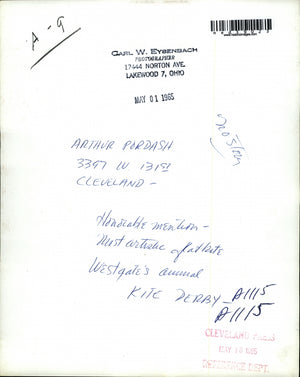 A-9
CARL W. EYSENBACH
PHOTOGRAPHER
17444 NORTON AVE.
LAKEWOOD 7, OHIO
MAY 01 1965
ARTHUR PORDASH
3397 W. 131ST
CLEVELAND -
Honorable mention -
Most artistic flat kite
Westgate's annual
KITE DERBY - A1115
A1115
CLEVELAND PRESS
MAY 10 1965
REFERENCE DEPT.